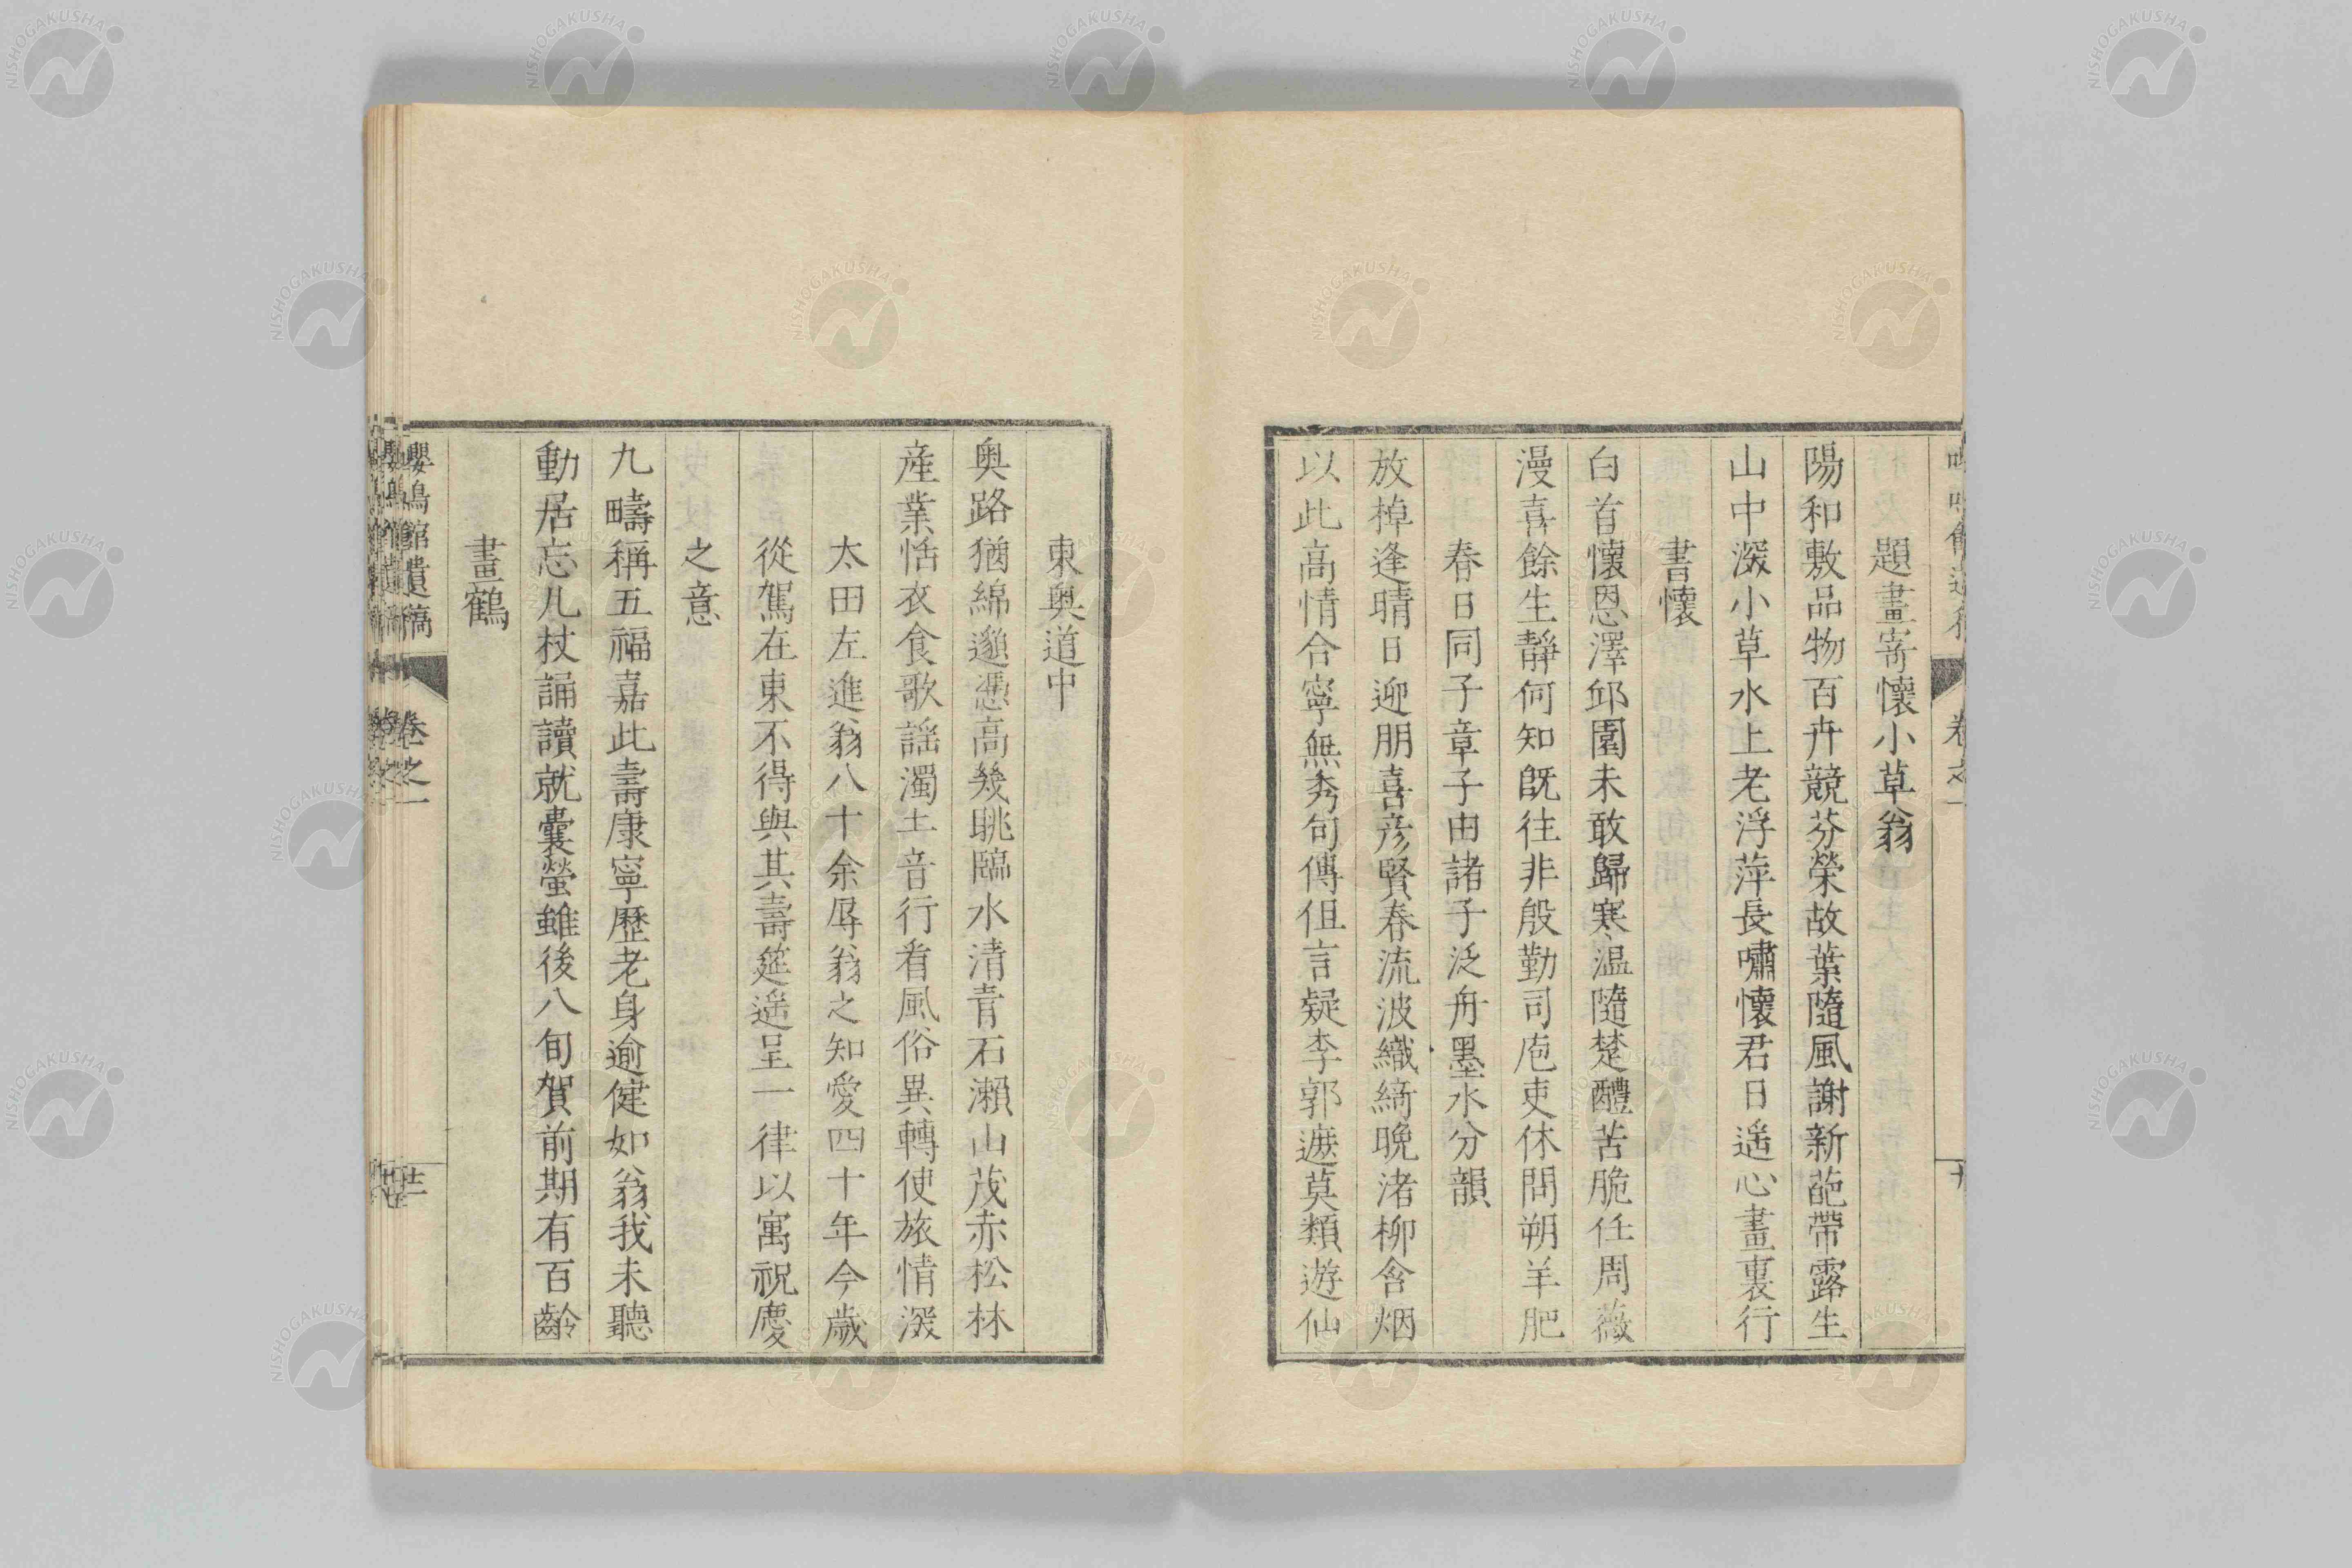 題畫寄懷小草翁
陽和敷品物百卉競芬榮故葉隨風謝新葩帶露生
山中深小草水上老浮萍長嘯懷君日遙心畫裏行
書懷
白首懷恩澤邱園未敢歸寒温隨楚醴苦脆任周薇
漫喜餘生靜何知既往非殷勤司庖吏休問朔羊肥
春日同子章子由諸子泛舟墨水分韻
放棹逢晴日迎朋喜彦賢春流波織綺晚渚柳含烟
以此高情合寧無秀句傳但言疑李郭遮莫類遊仙
東奥道中
奥路猶綿邈憑高幾眺臨水清青石瀬山茂赤松林
産業恬衣食歌謡濁土音行看風俗異轉使旅情深
太田左進翁八十余辱翁之知愛四十年今歲
從駕在東不得與其壽筵遥呈一律以寓祝慶
之意
九疇稱五福嘉此壽康寧歷老身逾健如翁我未聽
動居忘几杖誦讀就囊螢雖後八旬賀前期有百齡
畫鶴
嚶鳴館遺稿
卷之一
NISHOGAKUSHA